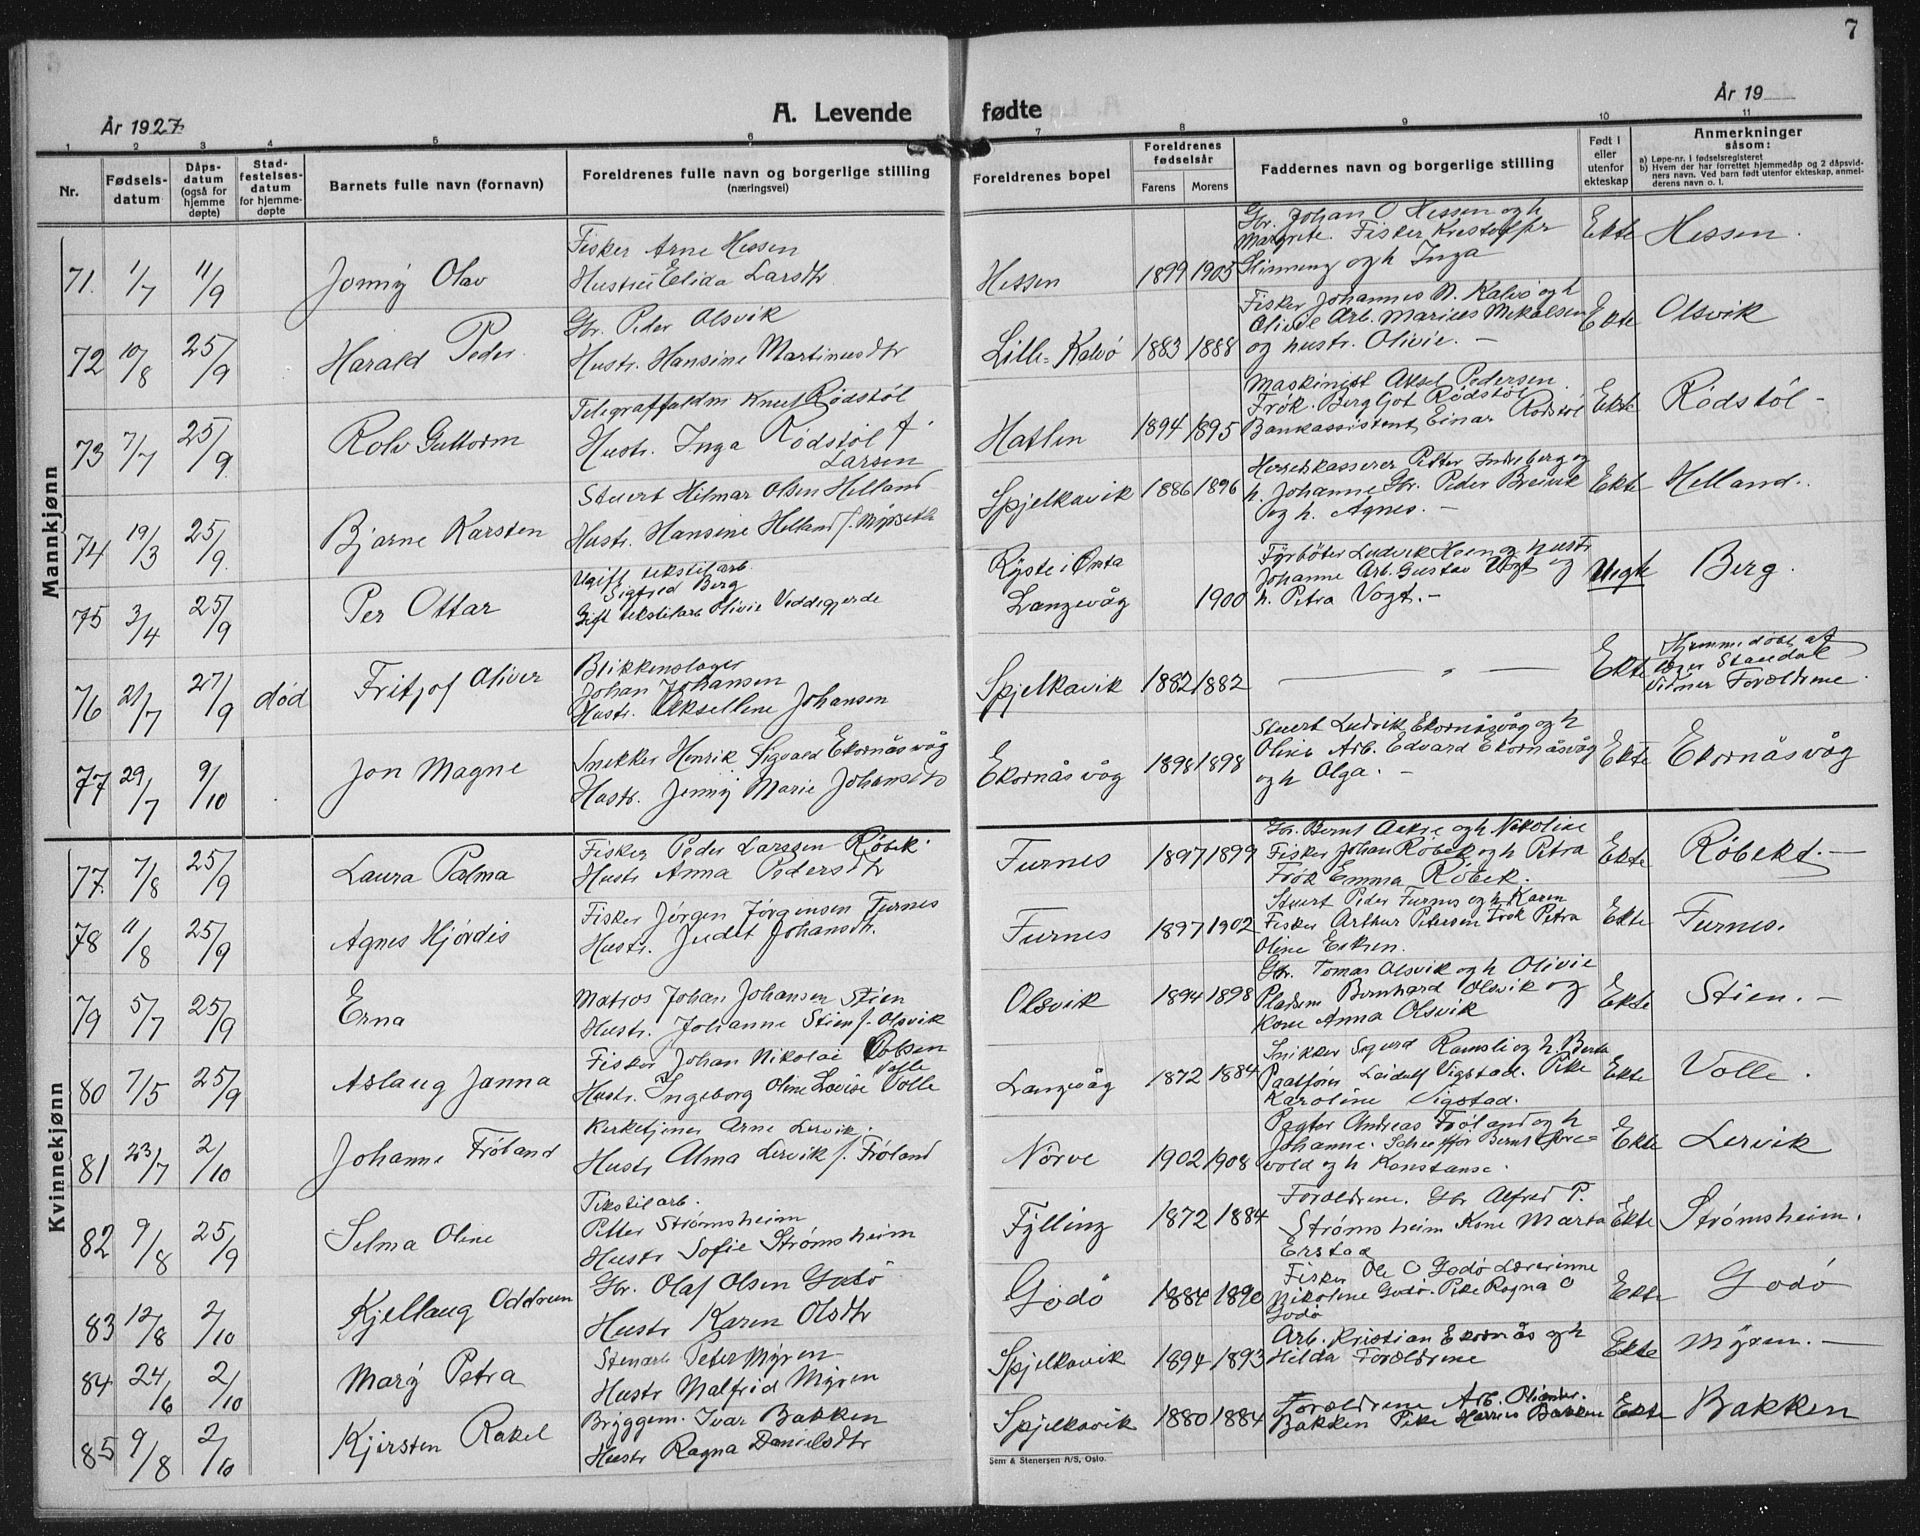 7
År 1927
A. Levende fødte
År 19
1 2 3 4 5 6 7 8 9 10 11
Nr.
Fødsels-
datum
Dåps-
datum
(også for
hjemme
døpte)
Stad-
festelses-
datum
for hjemme-
døpte
Barnets fulle navn (fornavn)
Foreldrenes fulle navn og borgerlige stilling
(næringsvei)
Foreldrenes bopel
Foreldrenes
fødselsår
Farens Morens
Faddernes navn og borgerlige stilling
Født i
eller
utenfor
ekteskap
Anmerkninger
såsom:
a) Løpe-nr. i fødselsregisteret
b) Hvem der har forrettet hjemmedåp og 2 dåpsvid-
ners navn. Ved barn født utenfor ekteskap, anmel-
derens navn o. l.
Mannkjønn
71. 1/7 11/9 Jonny Olav
Fisker Arne Hessen
Hustru Elida Larsdtr
Hessen 1899 1905
Gbr. Johan O Hessen og h
Margrete. Fisker Kristoffer
og h Inga
Ekte Hessen.
72 10/8 25/9 Harald Peder
Gbr. Peder Olsvik
Hustr. Hansine Martinusdtr
Lille-Kalvø 1883 1888
Fisker Johannes N. Kalvø og h
Olivie Arb. Marius Mekalsen
og hustr. Olivie. —
Ekte Olsvik
73 7/7 25/9 Rolv Guttorm
Knut Rødstøl
Hustr. Inga Rødstøl f.
Larsen
Hatlen 1894 1895
Maskinist Aksel Pedersen
Frøk. Berg Got Rødstøl
Bankassistent Einar Rødstøl
Ekte Rødstøl —
74 19/3 25/9 Bjarne Karsten
Stuert Hilmar Olsen Helland
Hustr. Hansine Helland f. Myrseth
Spjelkavik 1886 1896
Herredskasserer Petter Indreberg og
h. Johanne Gbr. Peder Breivik
og h. Agnes. —
Ekte Helland.
75 3/4 25/9 Per Ottar
Ugift tekstilarb
Sigfred Berg
Gift tekstilarb Olivie Veddegjerde
Ryste i Ørsta
Langevåg 1900
Fyrbøter Ludvik Heen og hustr
Johanne Arb. Gustav Vogt og
h. Petra Vogt. —
Uegte Berg.
76 21/7 27/9 død Fritjof Oliver
Blikkenslager
Johan Johansen
Hustr. Aksellene Johansen
Spjelkavik 1882 1882
— „ —
Ekte
Hjemmedøbt af
læger Standal
Vidner Forældrene.
77 29/7 9/10 Jon Magne
Snekker Henrik Sigvald Ekornåsvåg
Hustr. Jenny Marie Johansdtr
Ekornåsvåg 1898 1898
Stuert Ludvik Ekornåsvåg og h
Oline Arb. Edvard Ekornåsvåg
og h Olga. —
Ekte Ekornåsvåg
Kvinnekjønn
77. 7/8 25/9 Laura Palma
Fisker Peder Larssen Røbek.
Hustr Anna Pedersdtr
Furnes 1897 1899
Gbr. Bernt Aakre og h Nikoline
Fisker Johan Røbek og h Petra
Frøk Emma Røbek.
Ekte Røbekt. —
78 11/8 25/9 Agnes Hjørdis
Fisker Jørgen Jørgensen Furnes
Hustr. Judit Johansdtr.
Furnes 1897 1902
Stuert Peder Furnes og h Karen
Fisker Arthur Petersen Frøk Petra
Oline
Ekte Furnes.
79 5/7 25/9 Erna
Matros Johan Johansen Stien
Hustr. Johanne Stien f. Olsvik
Olsvik 1894 1898
Gbr. Tomas Olsvik og h Olivie
Bernhard Olsvik og
Kone Anna Olsvik
Ekte Stien. —
80 7/5 25/9 Aslaug Janna
Fisker Johan Nikolai
Volle
Hustr. Ingeborg Oline Lovise Volle
Langevåg 1872 1884
Snikker Sigurd Ramsli og h Berta
Leidulf Vigstad. Pike
Karoline Vigstad.
Ekte Volle.
81 23/7 2/10 Johanne Frøland
Kirketjener Arne Lervik.
Hustr Alma Lervik f. Frøland
Nørve 1902 1908
Andreas Frøland og h
Johanne. Bernt
vold og h Konstanse.
Ekte Lervik
82 9/8 25/9 Selma Oline
Tekstilarb.
Petter Strømsheim
Hustr Sofie Strømsheim
Fylling 1872 1884
Forældrene. Gbr Alfred P.
Strømsheim Kone Marta
Erstad
Ekte Strømsheim.
83 12/8 2/10 Kjellaug Oddrun
Gbr. Olaf Olsen Godø
Hustr Karen Olsdtr
Godø 1884 1890
Fisker Ole O Godø Lærerinne
Nikoline Godø. Pike Ragna O
Godø
Ekte Godø
84 24/6 2/10 Mary Petra
Stenarb Peter Myren
Hustr Malfrid Myren
Spjelkavik 1894 1893
Arb. Kristian Ekornås og h
Hilda Forældrene
Ekte Myren. —
85 9/8 2/10 Kjersten Rakel
Bryggem. Ivar Bakken
Hustr Ragna Danielsdtr
Spjelkavik 1880 1884
Forældrene Arb.
Bakken Pike Bakken
Ekte Bakken
Sem & Stenersen A/S, Oslo.